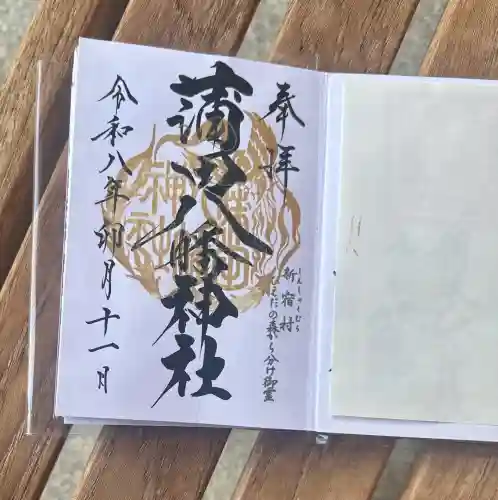 奉拝
しんしゅくむら
新宿村
ひえだの森から分け御霊
蒲田八幡神社
令和八年卯月十一月